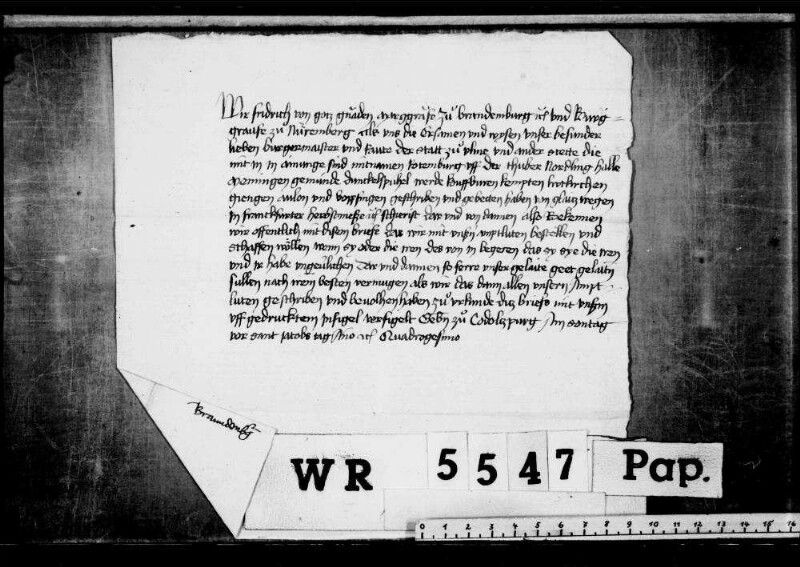 Wir fridrich von gotz gnaden Marggraufe zu Brandemburg etc vnd Burg
graufe zu Nüremberg Als vns die Ersamen vnd wysen vnser besunder
lieben burgermaister vnd Raute der Statt zu vlme vnd ander Stette die
mit in in Ainunge sind mitnamen Rotemburg vff der thuber Nordling Halle
Memingen gemunde dinckelspuhel werde kouffburen kempten lutkirchen
giengen aulon vnd bopffingen geschriben vnd gebetten haben von glaitz wegen
in franckfurter herbstmesse schierist dar vnd von dannen Also Bekennen
wir offentlich mit disem briefe das wir mit vnsern amptluten bestellen vnd
schaffen wöllen wenn sy oder die iren des von in begeren das sy sye die iren
vnd ir habe vngeuarlichen Dar vnd dannen so ferre vnser gelaite geet gelaiten
sullen nach irem besten vermugen als wir das dann allen vnsern Ampt
luten geschriben vnd beuolhen haben zu vrkunde diß briefs mit vnserm
vff gedrucktem Insigel versigelt Geben zu Cadoltzpurg Am Sontag
vor sant Jacobs tag Anno etc Quadragesimo
Brandenburg
WR 5547 Pap.
0 1 2 3 4 5 6 7 8 9 10 11 12 13 14 15 16